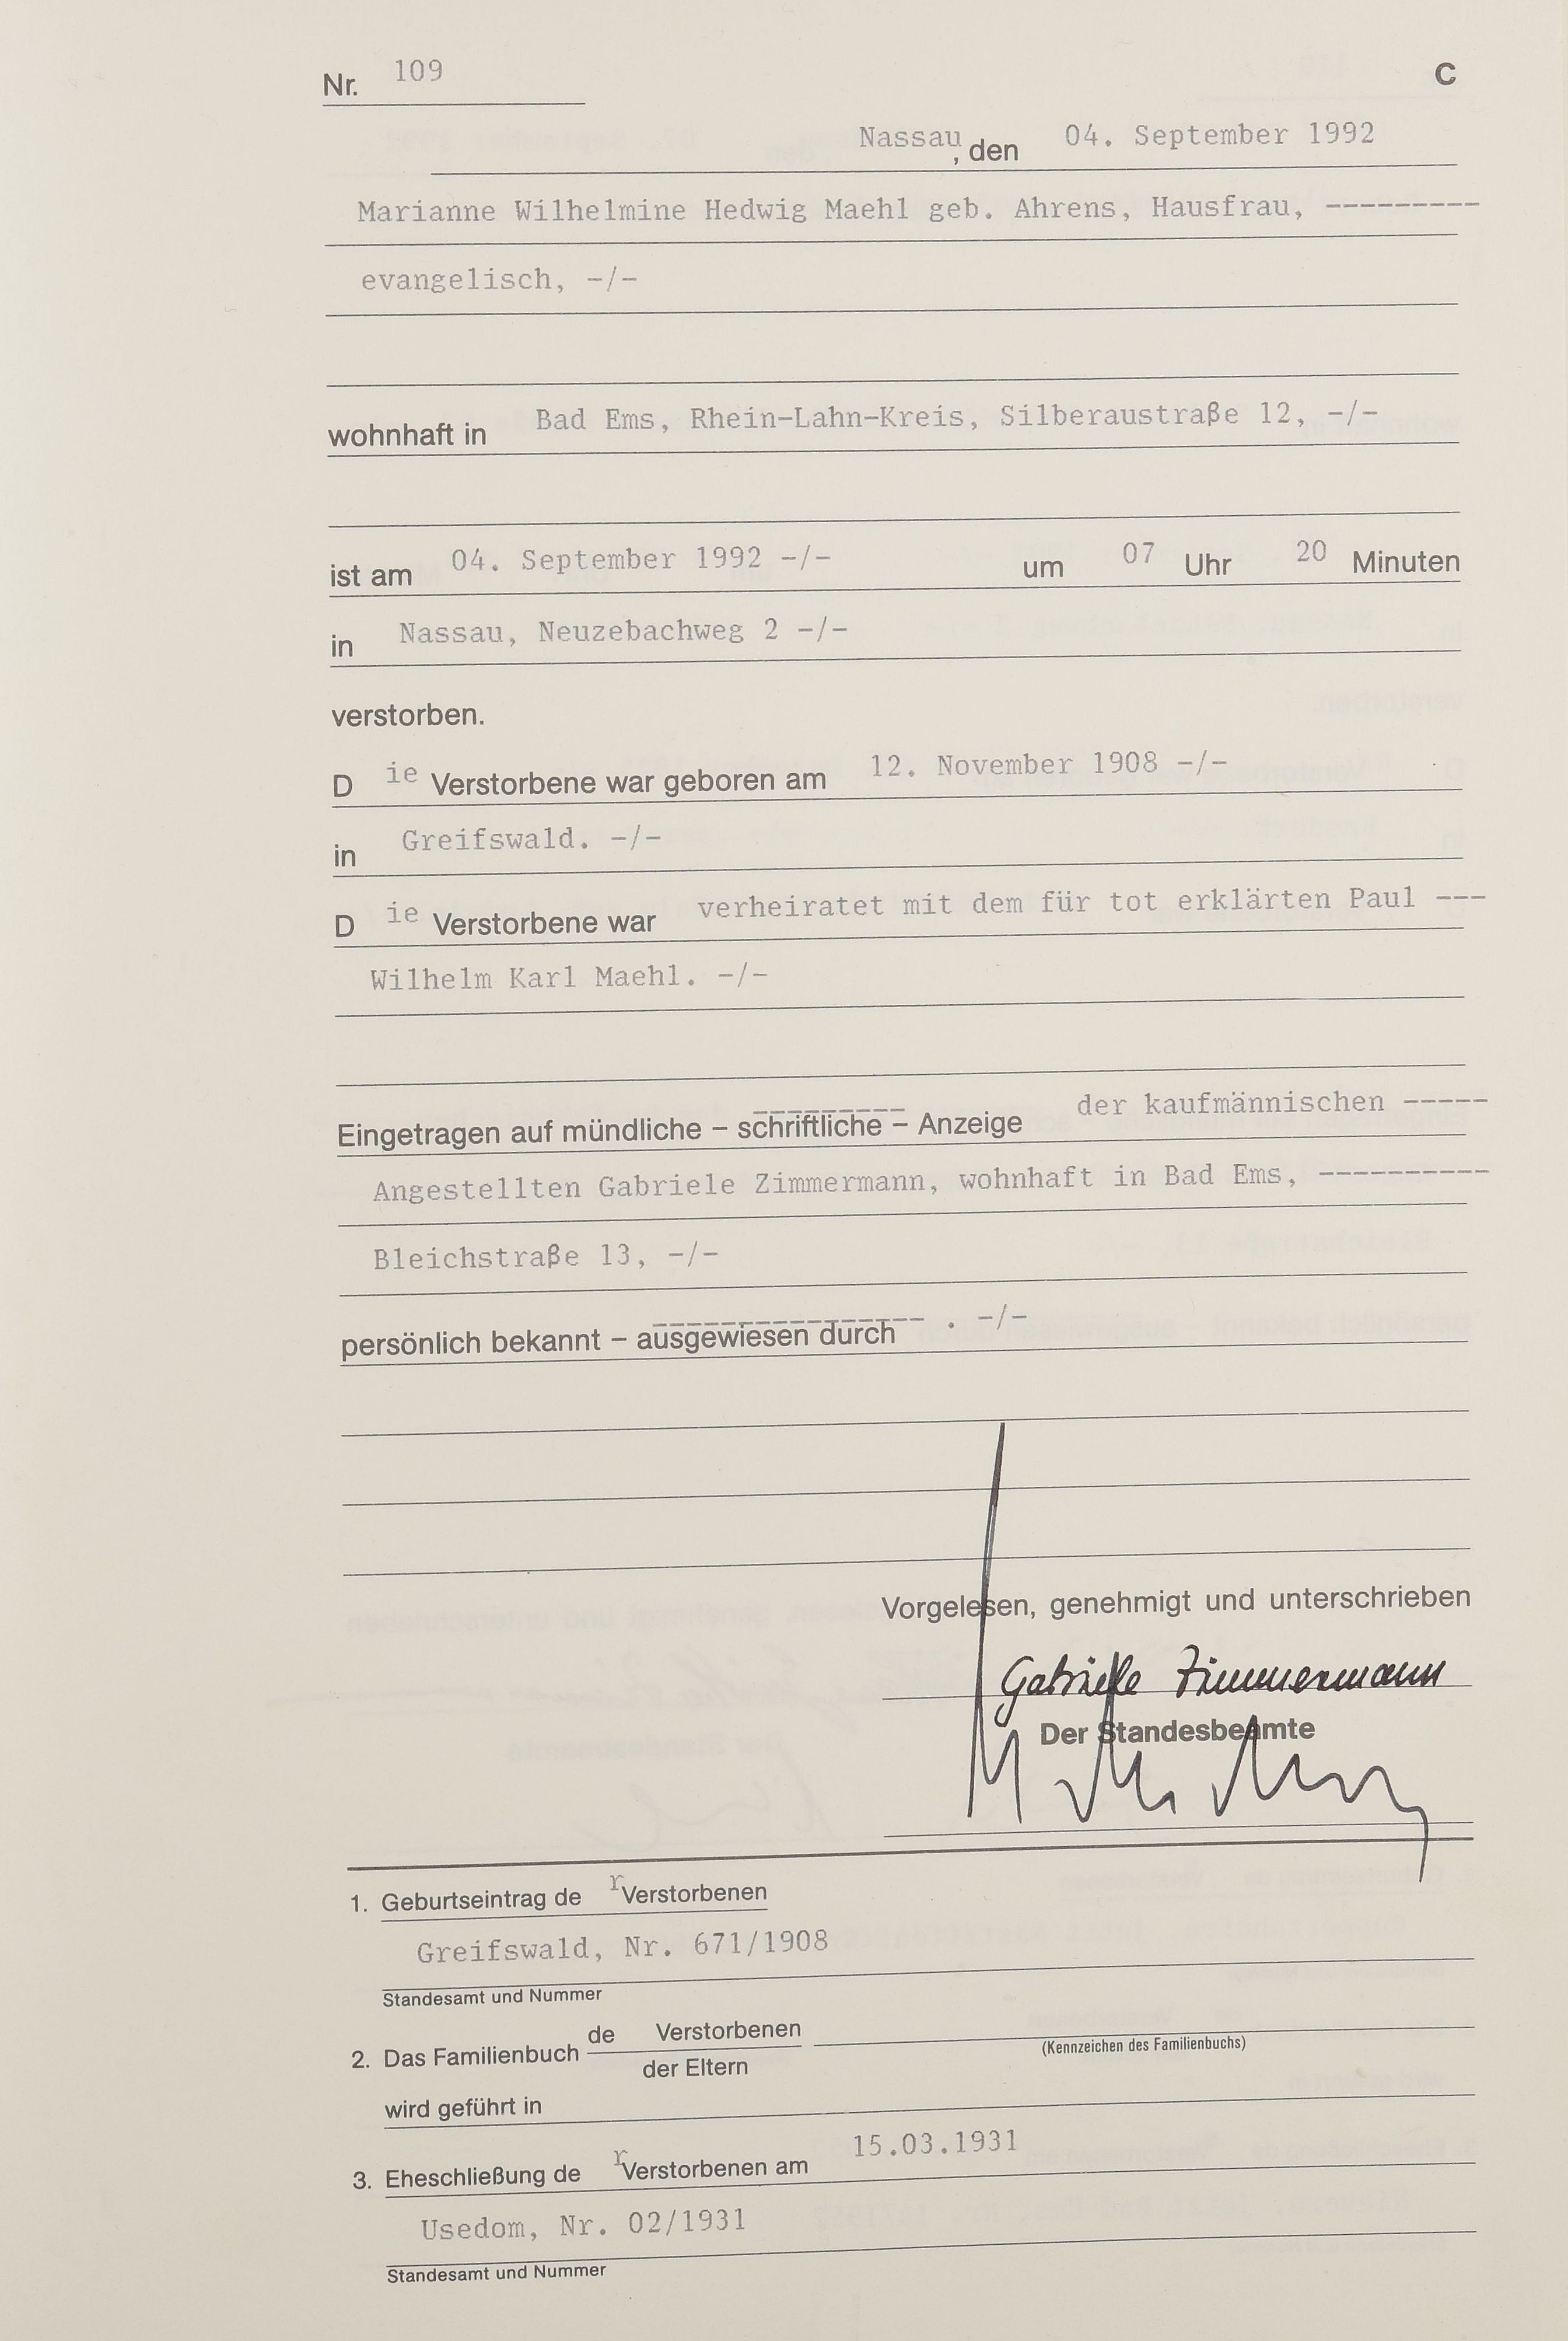 Nr. 109 C
Nassau, den 04. September 1992
Marianne Wilhelmine Hedwig Maehl geb. Ahrens, Hausfrau, ---------
evangelisch, -/-
wohnhaft in Bad Ems, Rhein-Lahn-Kreis, Silberaustraße 12, -/-
ist am 04. September 1992 -/- um 07 Uhr 20 Minuten
in Nassau, Neuzebachweg 2 -/-
verstorben.
D ie Verstorbene war geboren am 12. November 1908 -/-
in Greifswald. -/-
D ie Verstorbene war verheiratet mit dem für tot erklärten Paul ---
Wilhelm Karl Maehl. -/-
Eingetragen auf mündliche – schriftliche – Anzeige der kaufmännischen -----
Angestellten Gabriele Zimmermann, wohnhaft in Bad Ems, ----------
Bleichstraße 13, -/-
persönlich bekannt – ausgewiesen durch . -/-
Vorgelesen, genehmigt und unterschrieben
Gabriele Zimmermann
Der Standesbeamte
1. Geburtseintrag de r Verstorbenen
Greifswald, Nr. 671/1908
Standesamt und Nummer
2. Das Familienbuch de Verstorbenen
der Eltern
(Kennzeichen des Familienbuchs)
wird geführt in
3. Eheschließung de r Verstorbenen am 15.03.1931
Usedom, Nr. 02/1931
Standesamt und Nummer